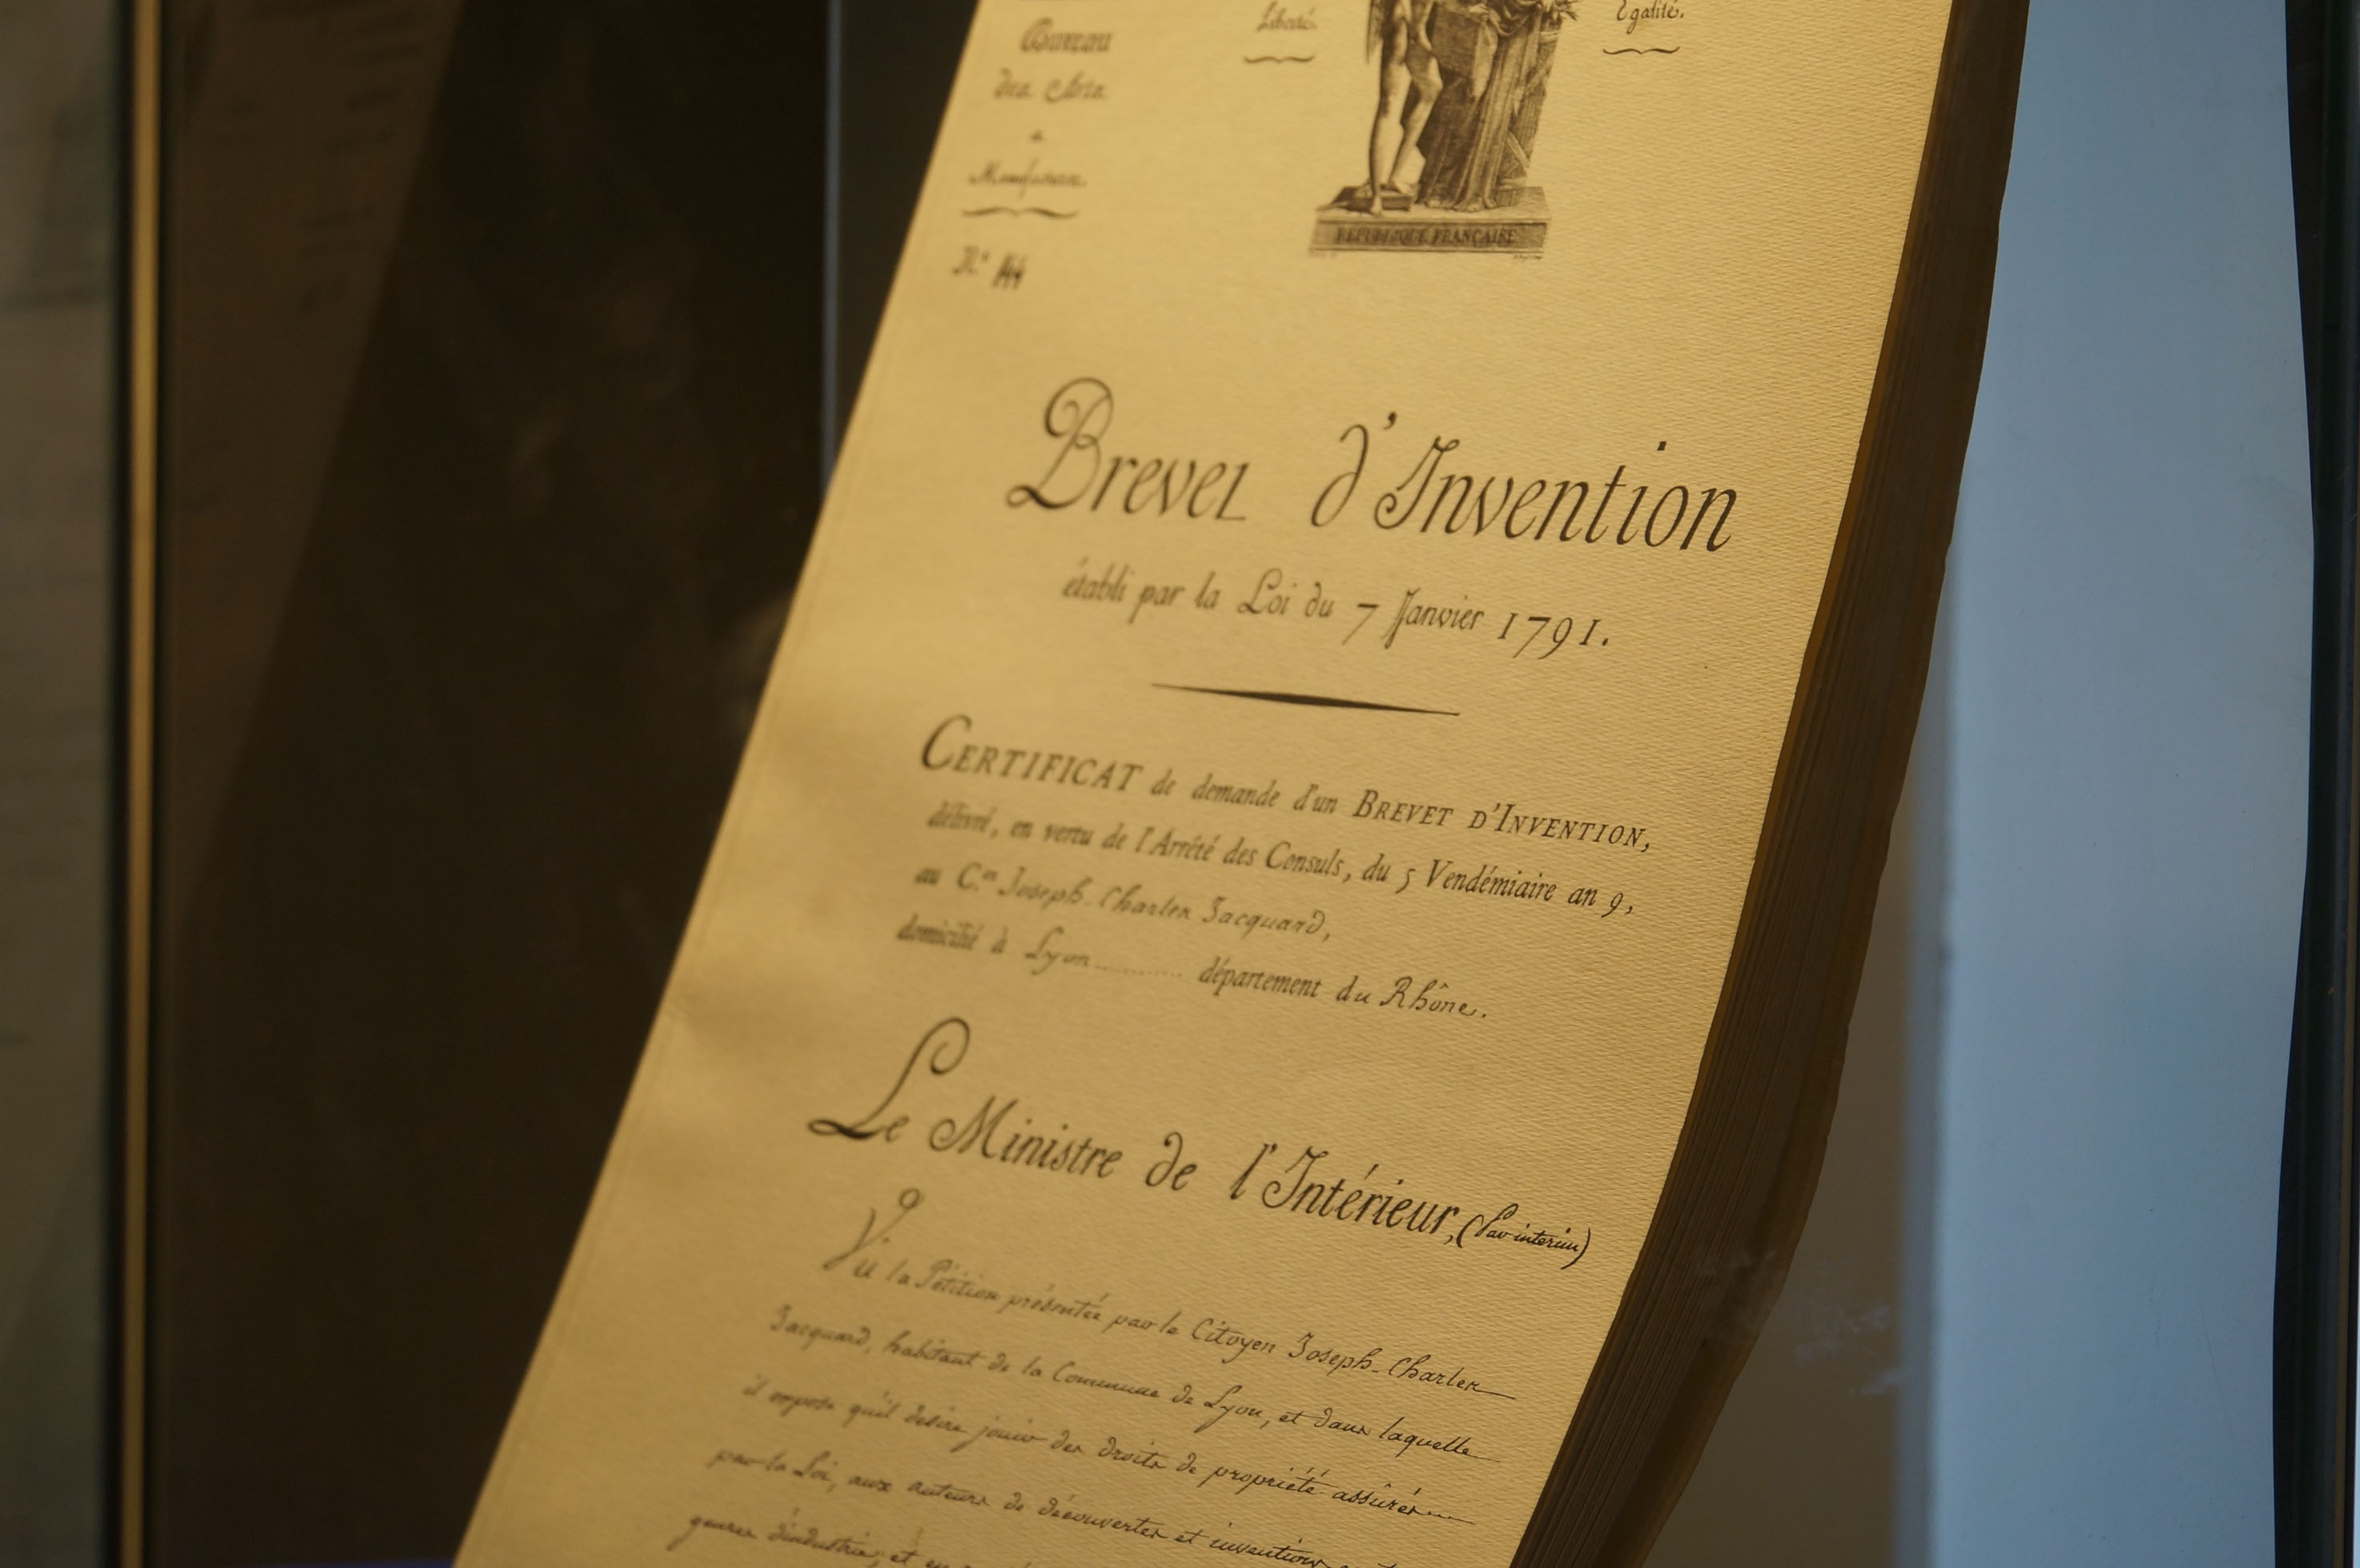 Bureau
des Arts
Liberté.
Égalité.
&
Manufactures.
RÉPUBLIQUE FRANÇAISE
N.º 144
Brevet d'Invention
établi par la Loi du 7 Janvier 1791.
CERTIFICAT de demande d'un BREVET D'INVENTION,
délivré, en vertu de l'Arrêté des Consuls, du 5 Vendémiaire an 9,
au C.en Joseph-Charles Jacquard,
domicilié à Lyon département du Rhône.
Le Ministre de l'Intérieur, (Par interim)
Vu la Pétition présentée par le Citoyen Joseph-Charles
Jacquard, habitant de la Commune de Lyon, et dans laquelle
il expose qu'il désire jouir des droits de propriété assurés
par la Loi, aux auteurs de découvertes et inventions
genres d'industrie; et en